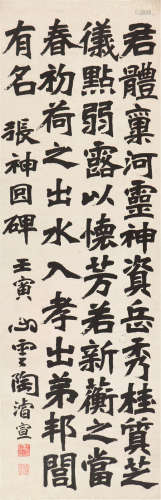 君體稟河靈神資岳秀桂質芝
儀點弱露以懷芳若新蘅之當
春初荷之出水入孝出弟邦閭
有名　張神冏碑　壬寅　心雲陶濬宣